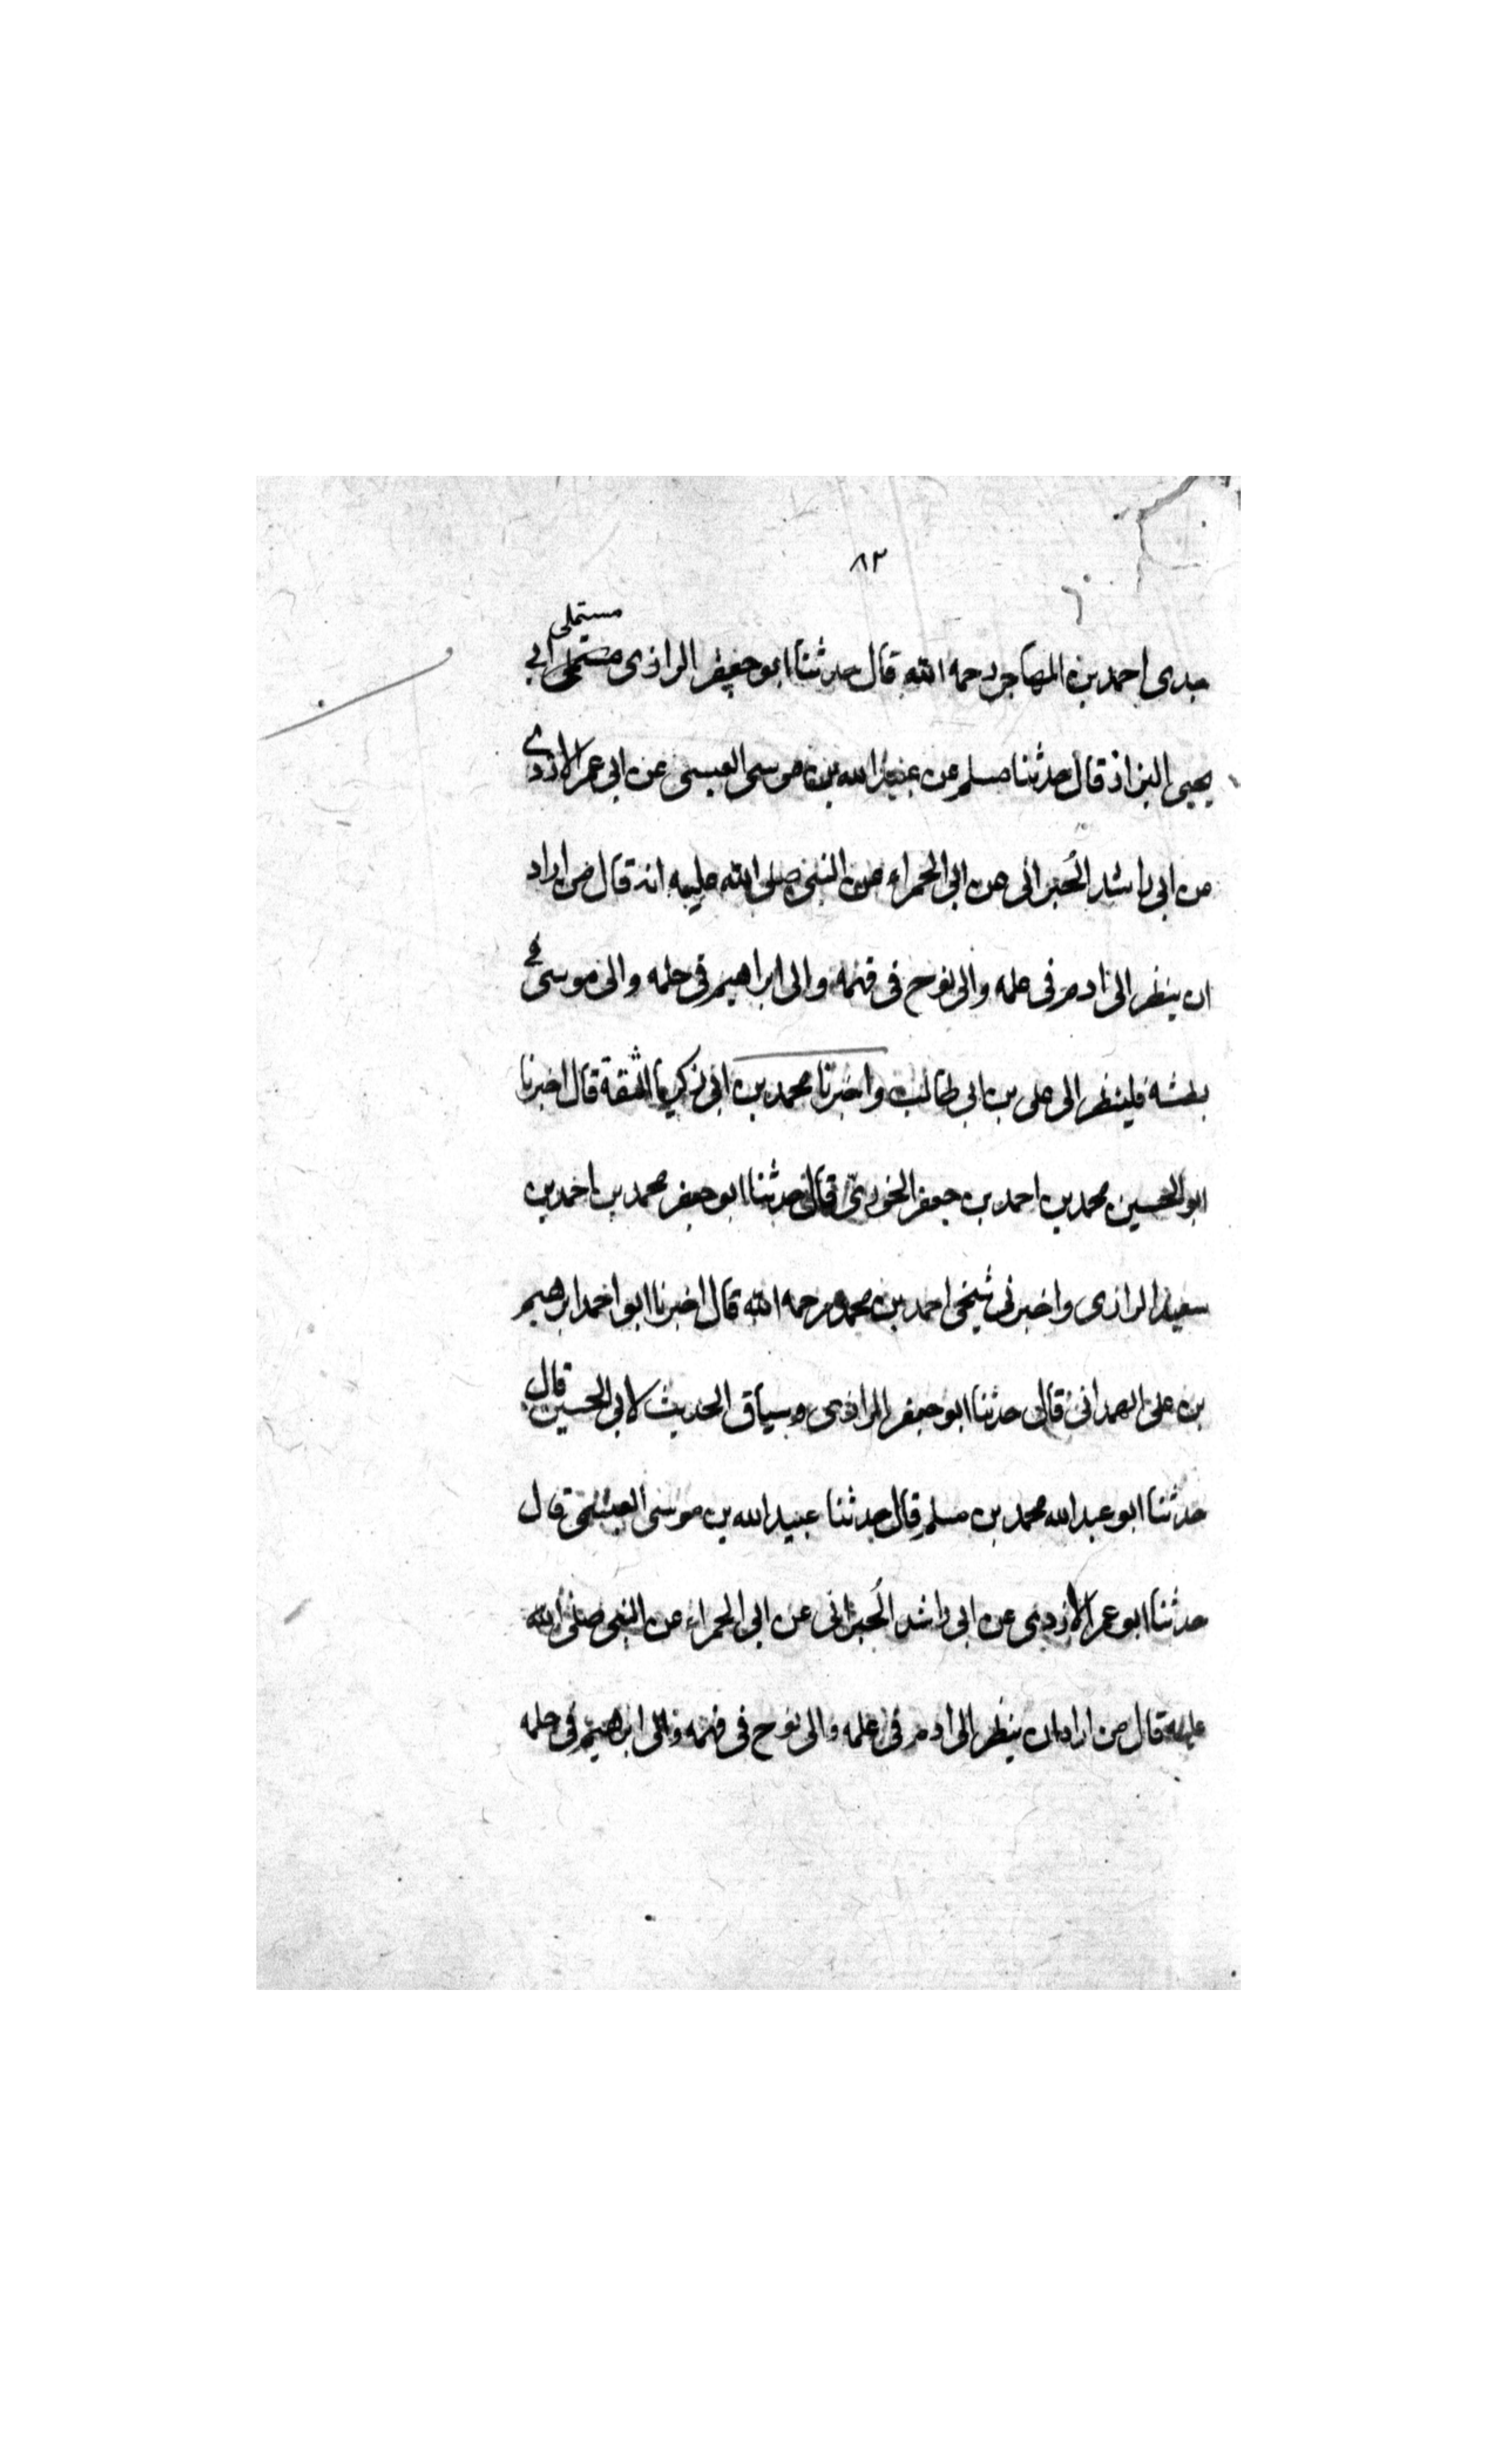 ٨٢
مستملى
جدى احمد بن المهاجر رحمه الله قال حدثنا ابو جعفر الرازى مستملى ابى
يحيى البزاز قال حدثنا مسلم عن عبيد الله بن موسى العبسى عن ابى عمر الازدى
عن ابى راشد الحبرانى عن ابى الحمراء عن النبى صلى الله عليه انه قال من اراد
ان ينظر الى ادم فى علمه والى نوح فى فهمه والى ابراهيم فى حلمه والى موسى فى
بطشه فلينظر الى على بن ابى طالب واخبرنا محمد بن ابى زكريا الثقة قال اخبرنا
ابو الحسين محمد بن احمد بن جعفر الخورى قال حدثنا ابو جعفر محمد بن احمد بن
سعيد الرازى واخبرنى شيخى احمد بن محمد رحمه الله قال اخبرنا ابو احمد ابرهيم
بن على الهمدانى قال حدثنا ابو جعفر الرازى وسياق الحديث لابى الحسين قال
حدثنا ابو عبد الله محمد بن مسلم قال حدثنا عبيد الله بن موسى العبسى قال
حدثنا ابو عمر الازدى عن ابى راشد الحبرانى عن ابى الحمراء عن النبى صلى الله
عليه قال من اراد ان ينظر الى ادم فى علمه والى نوح فى فهمه والى ابرهيم فى حلمه